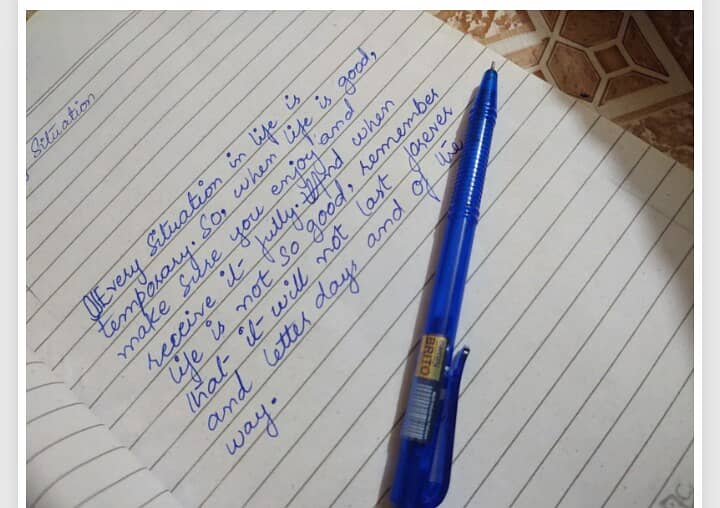 Situation
Every Situation in life is
temporary. So, when life is good,
make sure you enjoy and
receive it fully. And when
life is not so good, remember
that it will not last forever
and better days and of the
way.
BRITO